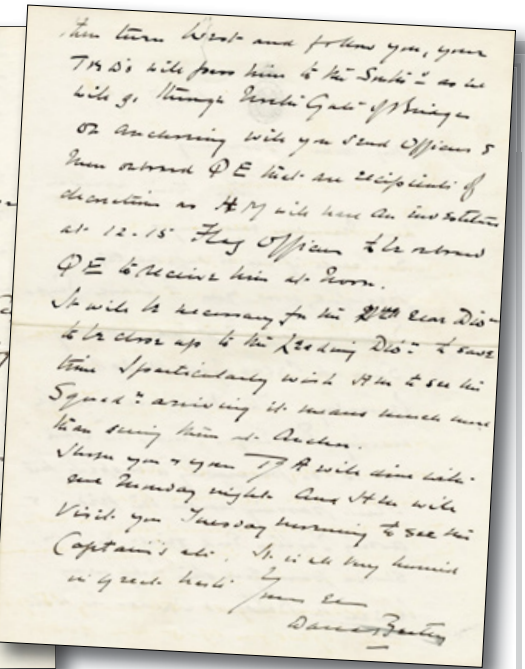 then turn West and follow you, your
TBD's will pass him to the South as he
will go through North Gate of Bridge
on anchoring will you send Officers &
Men onboard QE that are recipients of
decorations as HM will have an investiture
at 12-15 Flag Officers to be onboard
QE to receive him at Noon.
It will be necessary for the Rear Divn
to be close up to the Leading Divn to save
time I particularly wish HM to see the
Squadn arriving it means much more
than seeing them at Anchor.
I hope you & your will dine with
me Monday night. And HM will
Visit you Tuesday morning to see the
Captains etc. It is all very hurried
in great haste Yours
David Beatty